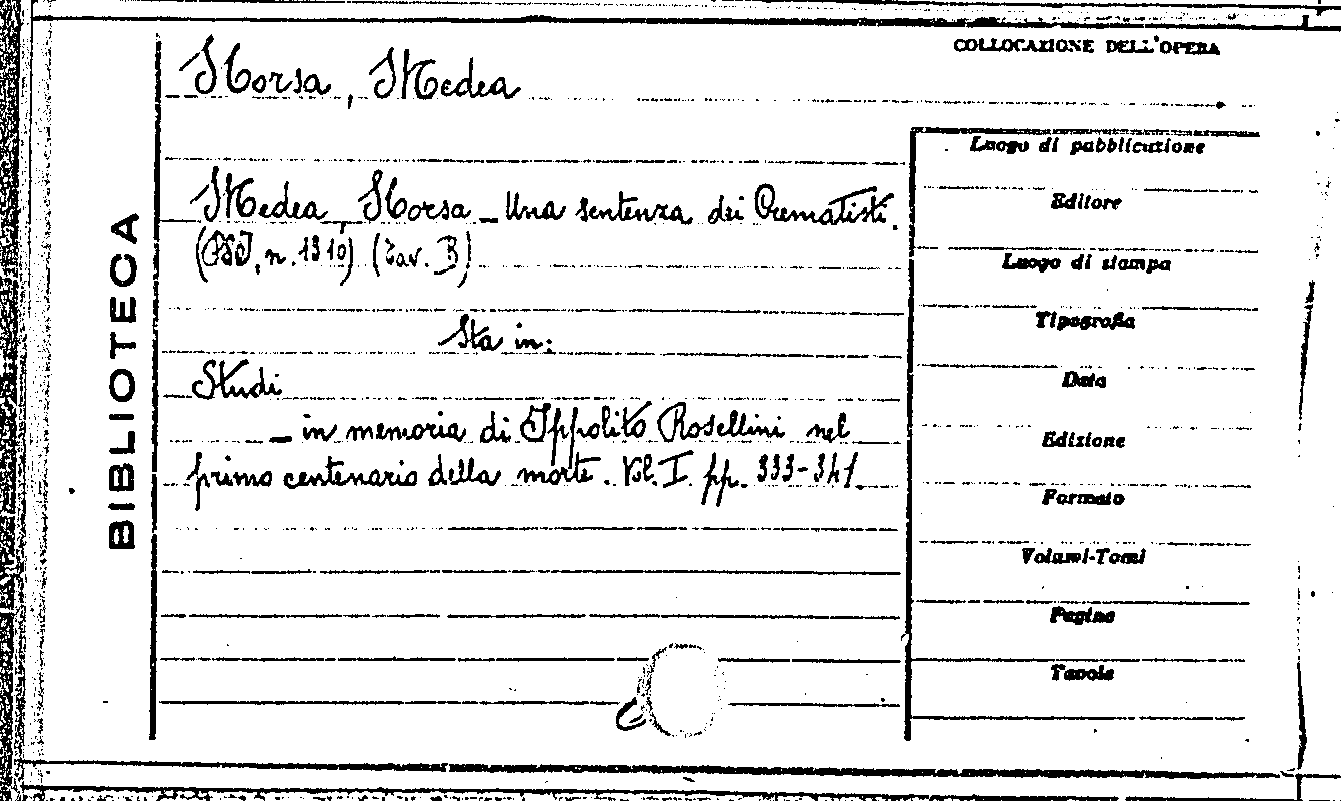 Norsa, Medea
COLLOCAZIONE DELL'OPERA
BIBLIOTECA
Medea Norsa _ Una sentenza dei Crematisti.
(PSI, n. 1310) (Tav. B)
Sta in:
Studi
_ in memoria di Ippolito Rosellini nel
primo centenario della morte. Vol. I. pp. 333-341.
Luogo di pubblicazione
Editore
Luogo di stampa
Tipografia
Data
Edizione
Formato
Volumi-Tomi
Pagine
Tavole